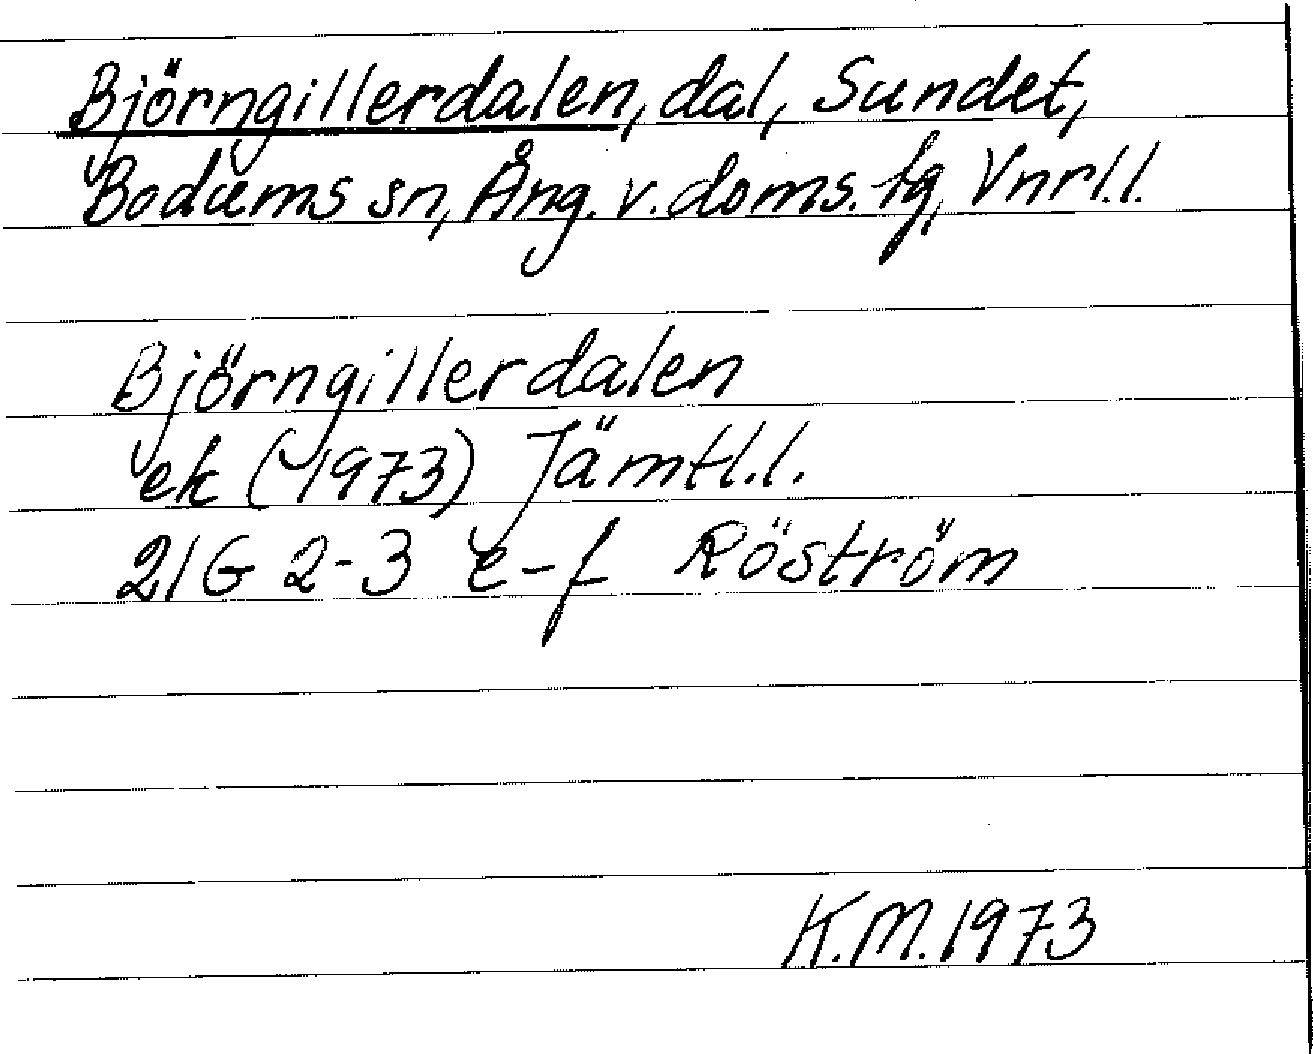 Björngillerdalen, dal, Sundet,
Bodums sn, Ång. v. doms. tg, Vnrl.l.
Björngillerdalen
ek (1973) Jämtl.l.
21G 2-3 e-f Röström
K.M. 1973